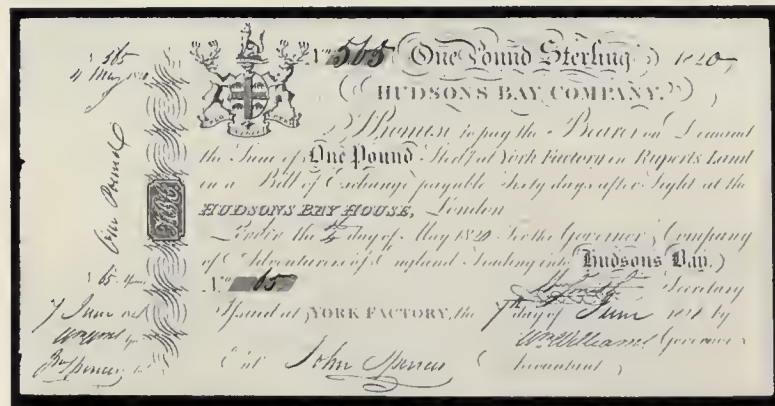 565
4 May
One Pound
65
7 June
John Spencer
PRO PELLE CUTEM
No. 565 One Pound Sterling 1820
HUDSONS BAY COMPANY.
I Promise to pay the Bearer on Demand
the Sum of One Pound Sterlg. at York Factory in Ruperts Land
in a Bill of Exchange payable Sixty days after Sight at the
HUDSONS BAY HOUSE, London
London the 4 day of May 1820 For the Governor & Company
of Adventurers of England Trading into Hudsons Bay.
No. 65 Secretary
Issued at YORK FACTORY, the 7th day of June 1821 by
Wm Williams Governor
Ent. John Spencer Accountant